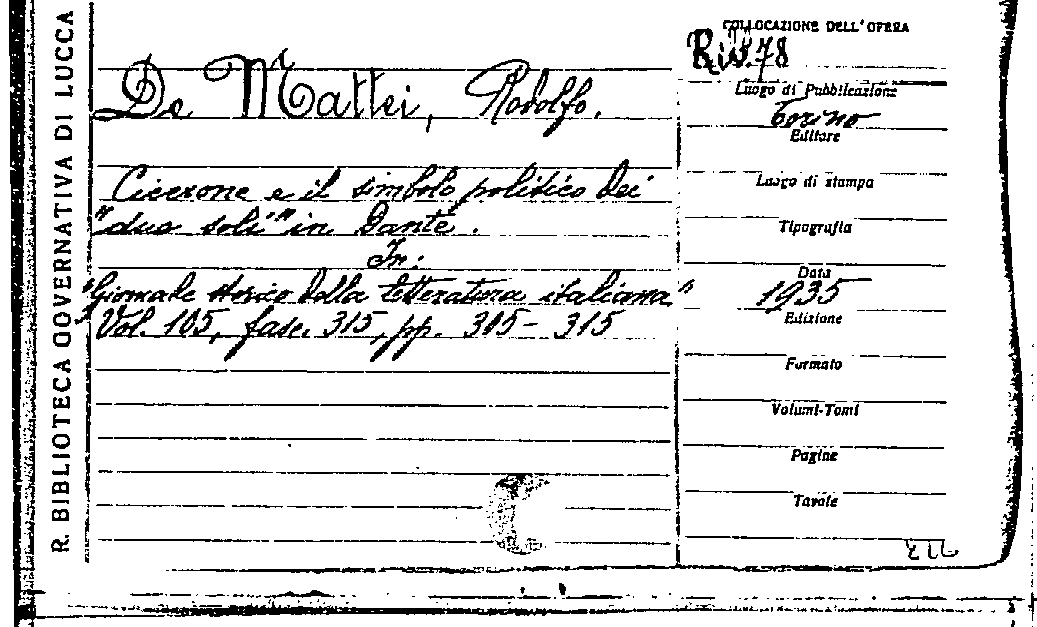 R. BIBLIOTECA GOVERNATIVA DI LUCCA
De Mattei, Rodolfo.
Cicerone e il simbolo politico dei
"due soli" in Dante.
In:
"Giornale storico della letteratura italiana"
Vol. 105, fasc. 315, pp. 305-315
COLLOCAZIONE DELL'OPERA
Riv. 78
Luogo di Pubblicazione
Torino
Editore
Luogo di stampa
Tipografia
Data
1935
Edizione
Formato
Volumi-Tomi
Pagine
Tavole